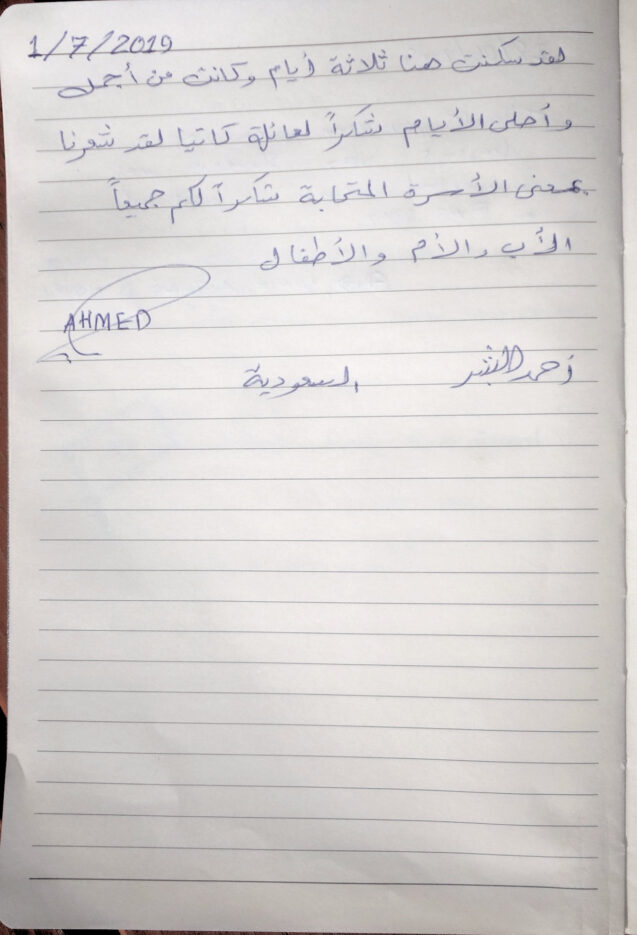 1/7/2019
لقد سكنت هنا ثلاثة أيام وكانت من أجمل
وأحلى الأيام شكراً لعائلة كاتيا لقد شعرنا
بمعنى الأسرة المتحابة شكراً لكم جميعاً
الأب والأم والأطفال
AHMED
أحمد السعودية